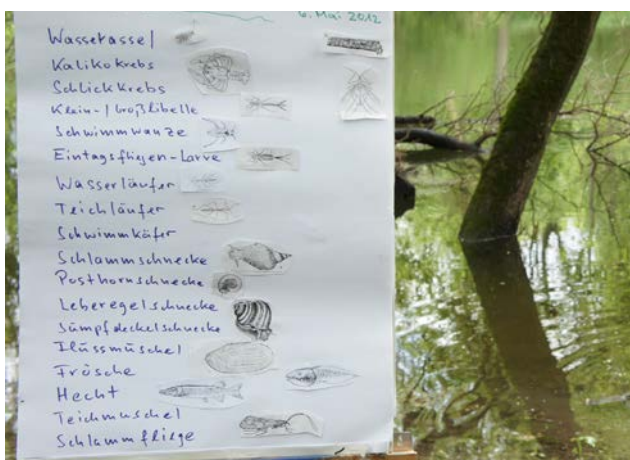 6. Mai 2012
Wasserassel
Kalikokrebs
Schlickkrebs
Klein-/Großlibelle
Schwimmwanze
Eintagsfliegen-Larve
Wasserläufer
Teichläufer
Schwimmkäfer
Schlammschnecke
Posthornschnecke
Leberegelschnecke
Sumpfdeckelschnecke
Flussmuschel
Frösche
Hecht
Teichmuschel
Schlammfliege